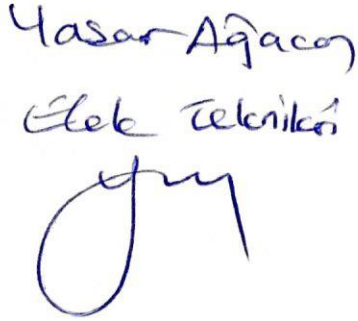 Yasar Ağacan
Elek Teknikri